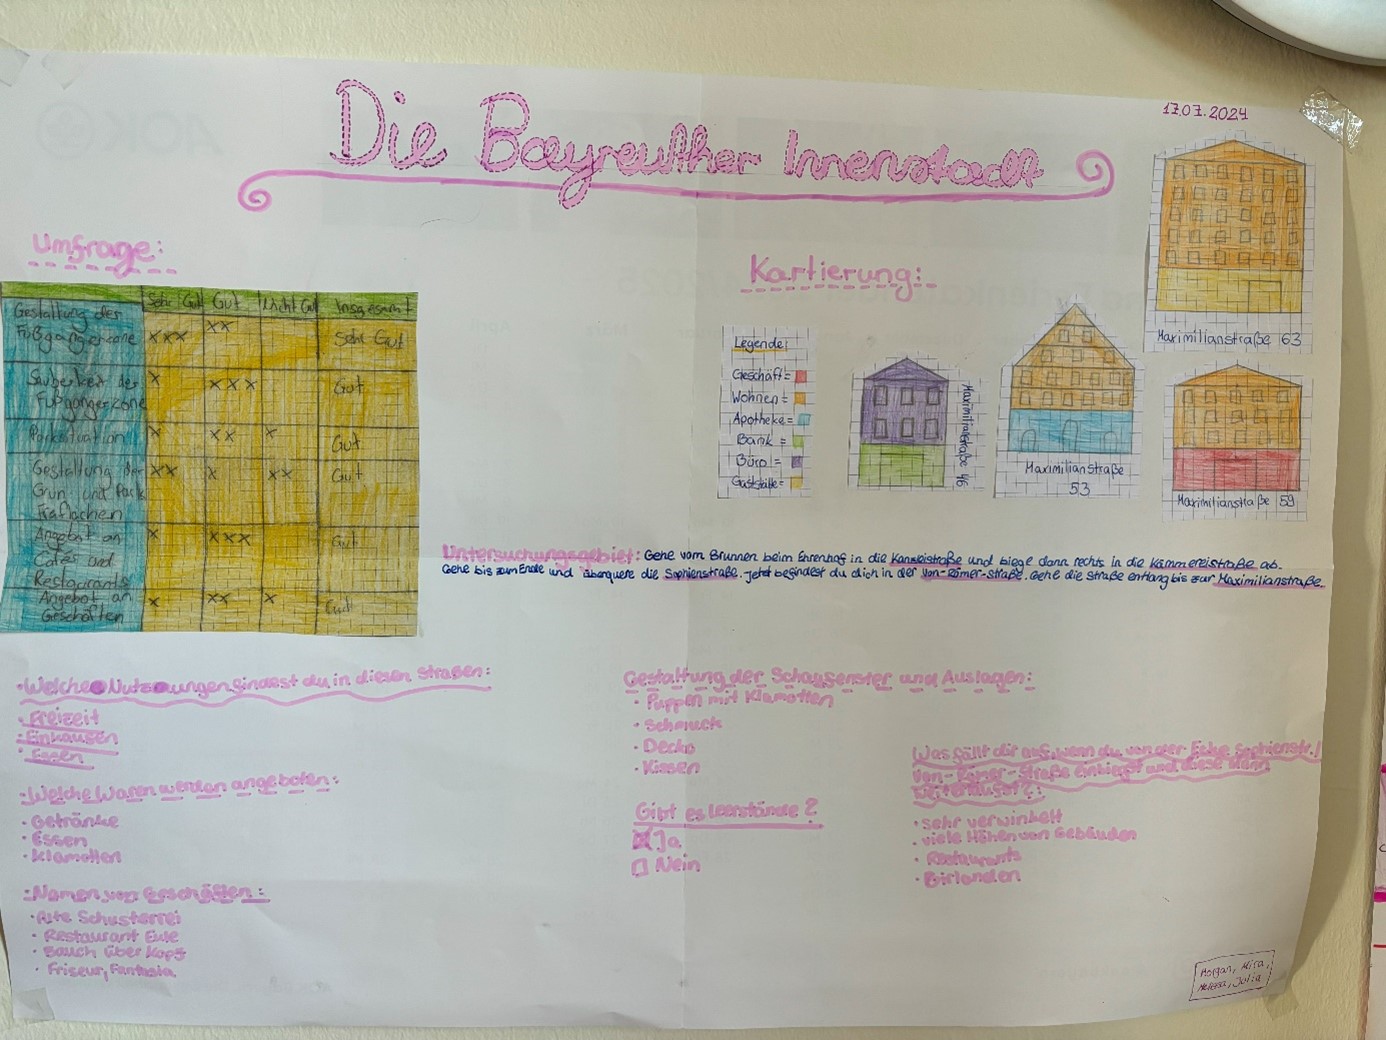 Die Bayreuther Innenstadt
17.07.2024
Umfrage:
Sehr Gut Gut Nicht Gut Insgesamt
Gestaltung der
Fußgängerzone xxx xx Sehr Gut
Sauberkeit der
Fußgängerzone x xxx Gut
Parksituation x xx x Gut
Gestaltung der
Grün und Park
flächen xx x xx Gut
Angebot an
Cafés und
Restaurants x xxx Gut
Angebot an
Geschäften x xx x Gut
Kartierung:
Legende:
Geschäft=
Wohnen=
Apotheke=
Bank =
Büro =
Gaststätte=
Maximilianstraße 46
Maximilianstraße
53
Maximilianstraße 63
Maximilianstraße 59
Untersuchungsgebiet: Gehe vom Brunnen beim Ehrenhof in die Kanzleistraße und biege dann rechts in die Kämmereistraße ab.
Gehe bis zum Ende und überquere die Sophienstraße. Jetzt befindest du dich in der Von-Römer-Straße. Gehe die Straße entlang bis zur Maximilianstraße.
·Welche Nutzungen findest du in diesen Straßen:
· Freizeit
· Einkaufen
· Essen
·Welche Waren werden angeboten:
· Getränke
· Essen
· Klamotten
·Namen von Geschäften:
· Alte Schusterrei
· Restaurant Eule
· Bauch über Kopf
· Friseur, Fantasia
Gestaltung der Schaufenster und Auslagen:
· Puppen mit Klamotten
· Schmuck
· Decko
· Kissen
Gibt es leerstände?
☒ Ja
☐ Nein
Was fällt dir auf, wenn du von der Ecke Sophienstr./
Von-Römer-Straße einbiegst und diese dann
weiterläufst?:
· sehr verwinkelt
· viele Höhen von Gebäuden
· Restaurants
· Birlanden
Morgan,
Julia
AOK
2025